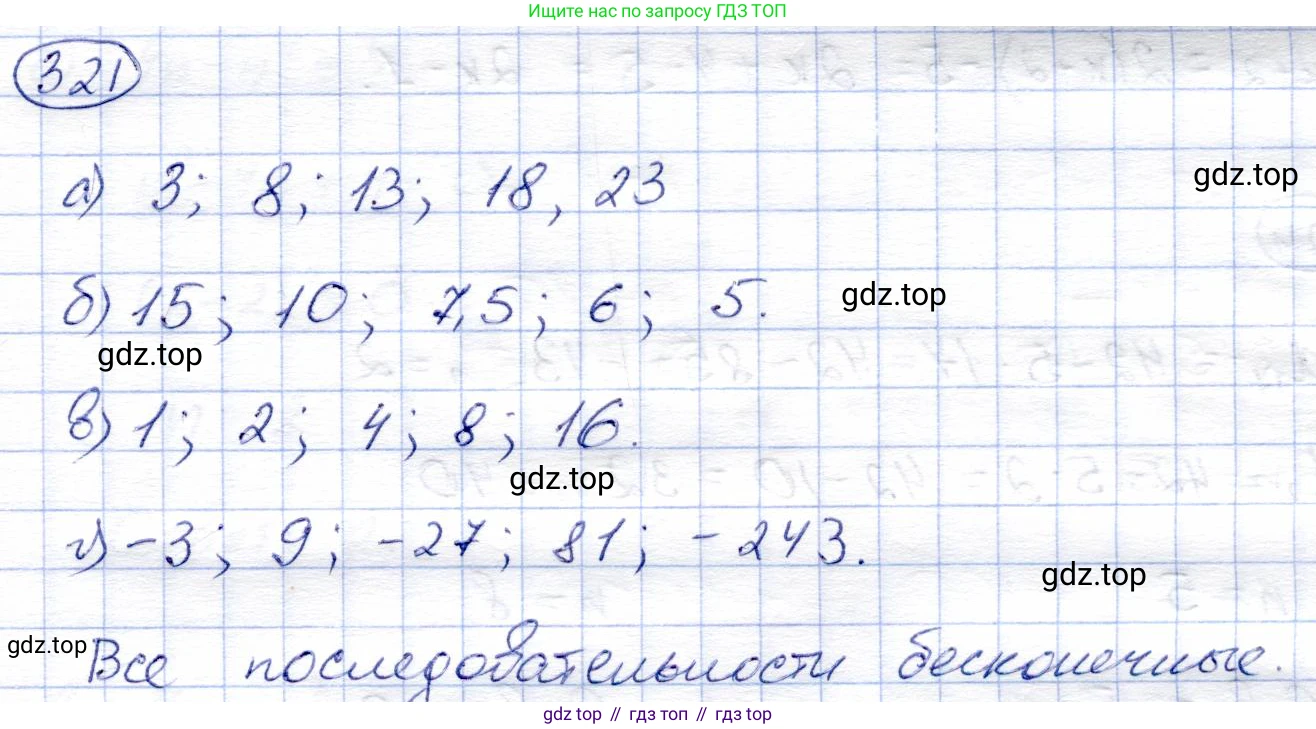 Ищите нас по запросу ГДЗ ТОП
321
а) 3; 8; 13; 18, 23
gdz.top
б) 15; 10; 7,5; 6; 5.
gdz.top
gdz.top
в) 1; 2; 4; 8; 16.
gdz.top
г) -3; 9; -27; 81; -243.
gdz.top
gdz.top
Все последовательности бесконечные.
gdz top // гдз топ // gdz top